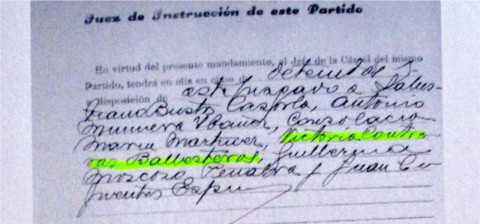 Juez de Instrucción de este Partido
En virtud del presente mandamiento, el Jefe de la Cárcel del mismo
Partido, tendrá en ella en clase de detenidos
y disposición de este Juzgado a Salus-
tiano Busto Cazorla, Antonio
Munuera Ibañez, Consolacio
Maria Martinez, Victoria Contre
ras Ballesteros, Guillermina
Moscoso Penalva y Juan Ci
fuentes